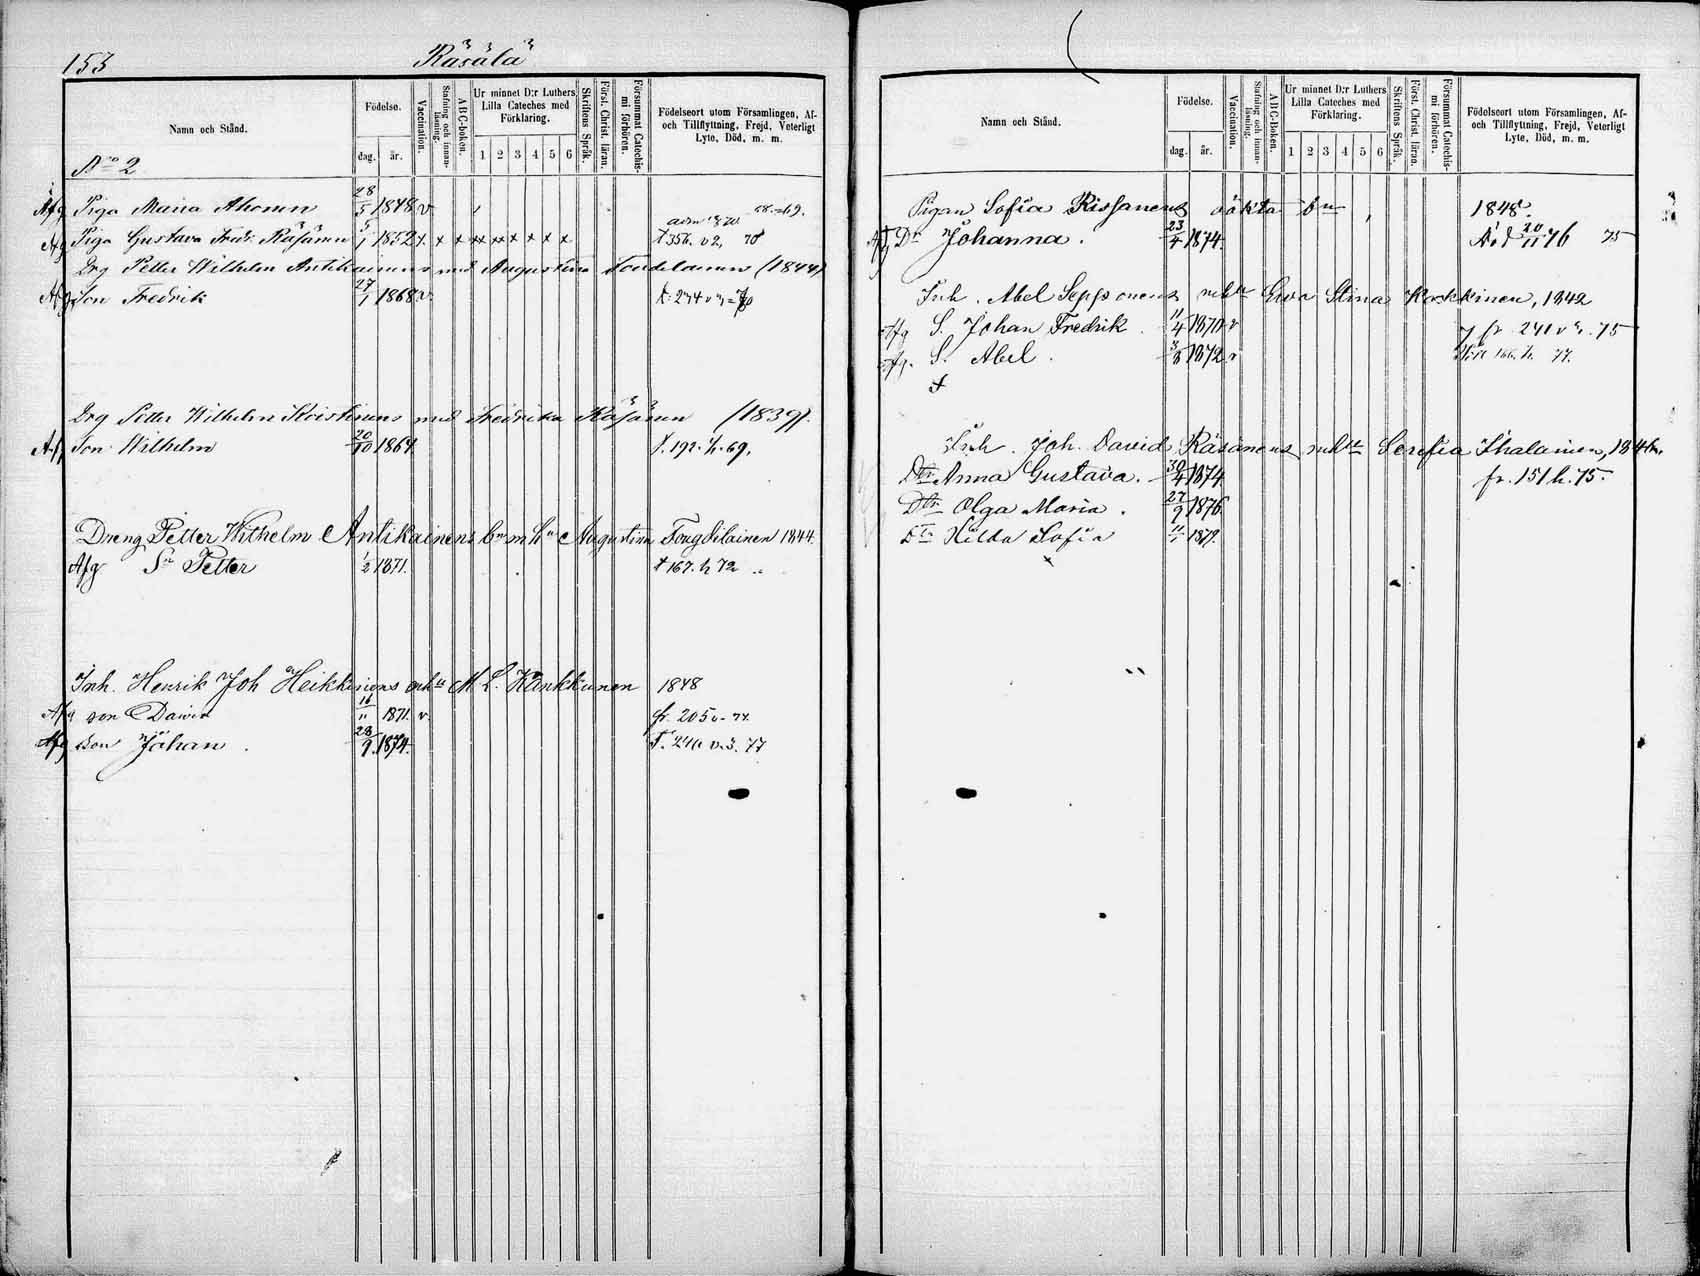 153 Räsälä
Namn och Stånd. Födelse. dag. år. Vaccination. Stafning och innanläsning. ABC-boken. Ur minnet D:r Luthers Lilla Cateches med Förklaring. 1 2 3 4 5 6 Skriftens Språk. Först. Christ. läran. Försummat Catechismi förhören. Födelseort utom Församlingen, Af- och Tillflyttning, Frejd, Veterligt Lyte, Död, m. m.
No 2
Afg Piga Maria Ahonen 28/5 1848 v
Afg Piga Gustava Fredr. Räsänen 5/1 1852 x x x xx x x x x x 356. v 2, 70
Drg Petter Wilhelm Antikainens med Augustina (1844)
Afg Son Fredrik 27/1 1868 v
Drg Petter Wilhelm Koistinens med Fredrika Räsänen (1839).
Afg Son Wilhelm 20/10 1864 f. 192. h. 69.
Dreng Petter Wilhelm Antikainens bn m hu Augustina 1844.
Afg Sn Petter 1/2 1871. 167. h 72
Inh. Henrik Joh Heikkinens M. L. Kankkunen 1848
Afg son David 16/11 1871. v. fr. 205 v. 74.
Afg Son Johan 28/9 1874. 77
Namn och Stånd. Födelse. dag. år. Vaccination. Stafning och innanläsning. ABC-boken. Ur minnet D:r Luthers Lilla Cateches med Förklaring. 1 2 3 4 5 6 Skriftens Språk. Först. Christ. läran. Försummat Catechismi förhören. Födelseort utom Församlingen, Af- och Tillflyttning, Frejd, Veterligt Lyte, Död, m. m.
Pigan Sofia Rissanens oäkta bn 1848.
Afg Dr Johanna. 23/4 1874. 20/11 76 75
Inh. Abel Sepponens Eva Stina Koskinen, 1842
Afg S. Johan Fredrik 11/4 1870 v fr 241 v 75
Afg. S. Abel. 3/8 1872 v 166. h. 77.
Inh. Joh. David Räsänens Serefia Ihalainen, 184
Dtr Anna Gustava. 30/4 1874. fr. 151 h. 75.
Dtr Olga Maria. 27/9 1876
Dtr Hilda Sofia 11/1 1879.